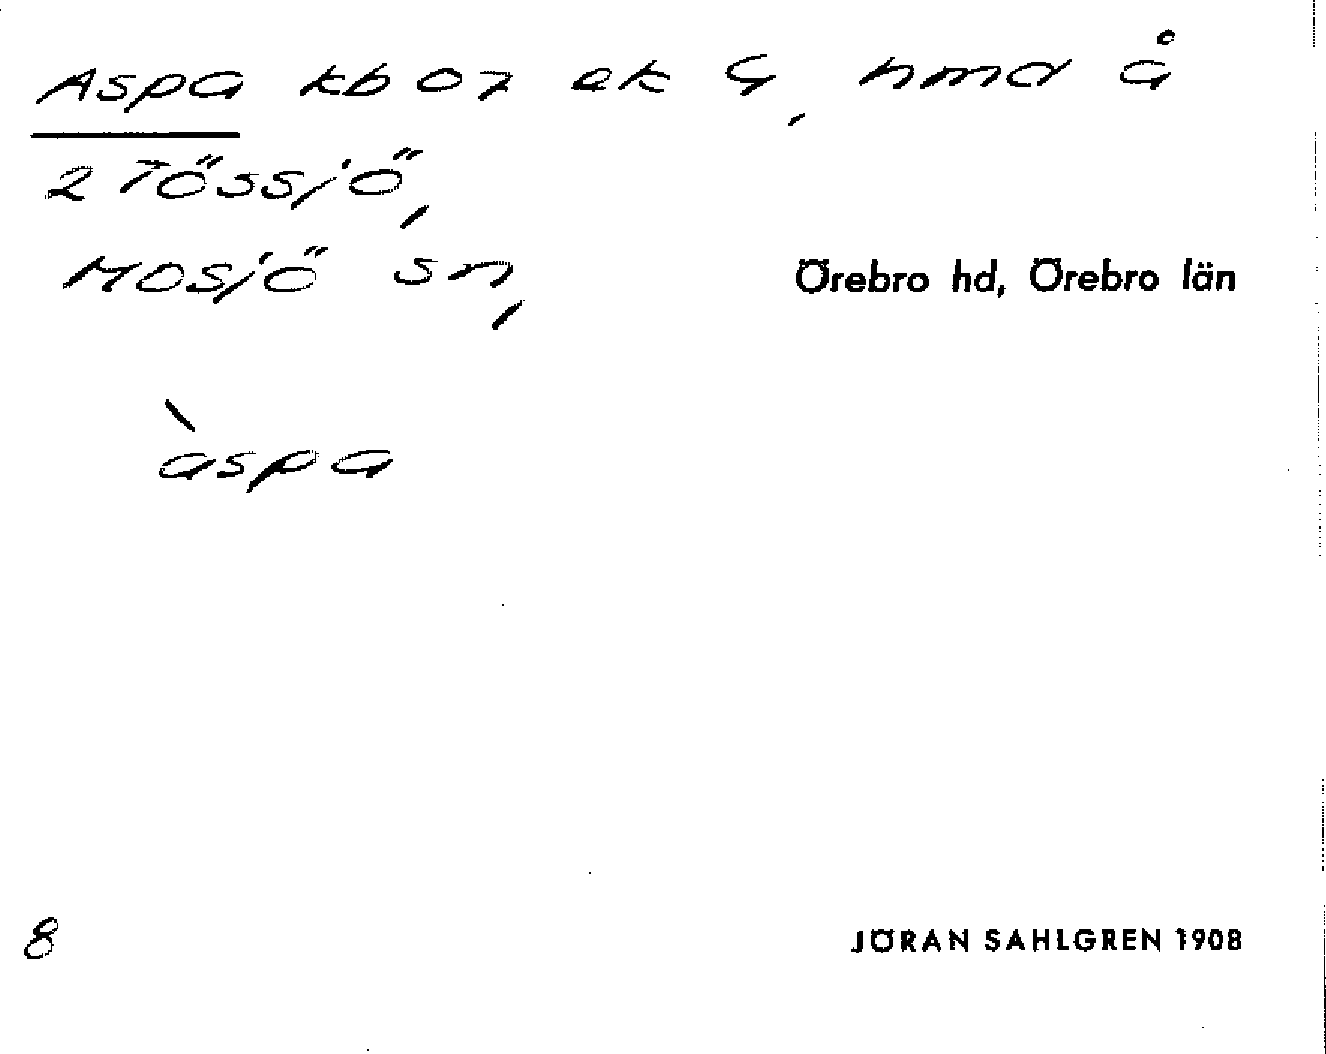 Aspa kb 07 ek G, hmd å
2 Tössjö,
Mosjö sn,
Örebro hd, Örebro län
àspa
8
JÖRAN SAHLGREN 1908